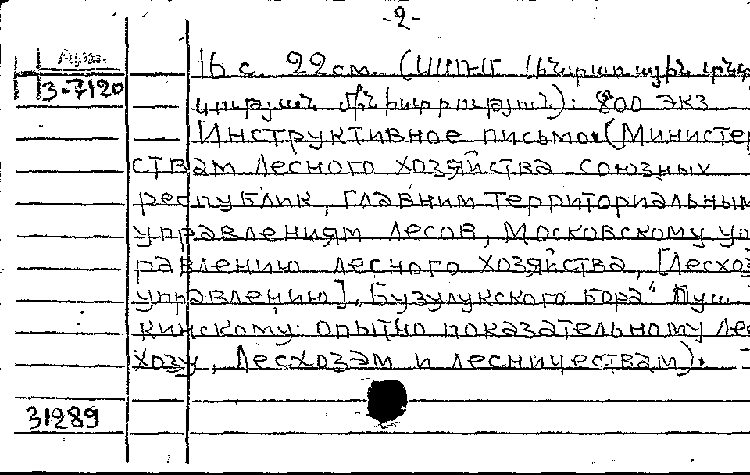 -2-
16 с. 22 см. (ՍՍՌՄ
Արմ.
3-7120
800 экз
Инструктивное письмо (Министер
ствам лесного хозяйства союзных
республик, главним территориальным
управлениям лесов, Московскому уп
равлению лесного хозяйства, [Лесхоз
управлению], Бузулукского бора" Пуш
кинскому опытно показательному лес
хозу, Лесхозам и лесничествам).
31289